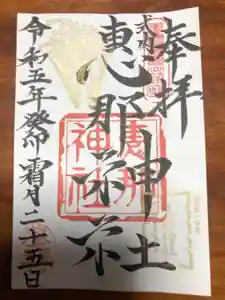 奉拝
式内
恵那神社
恵那神社
令和五年癸卯霜月二十五日